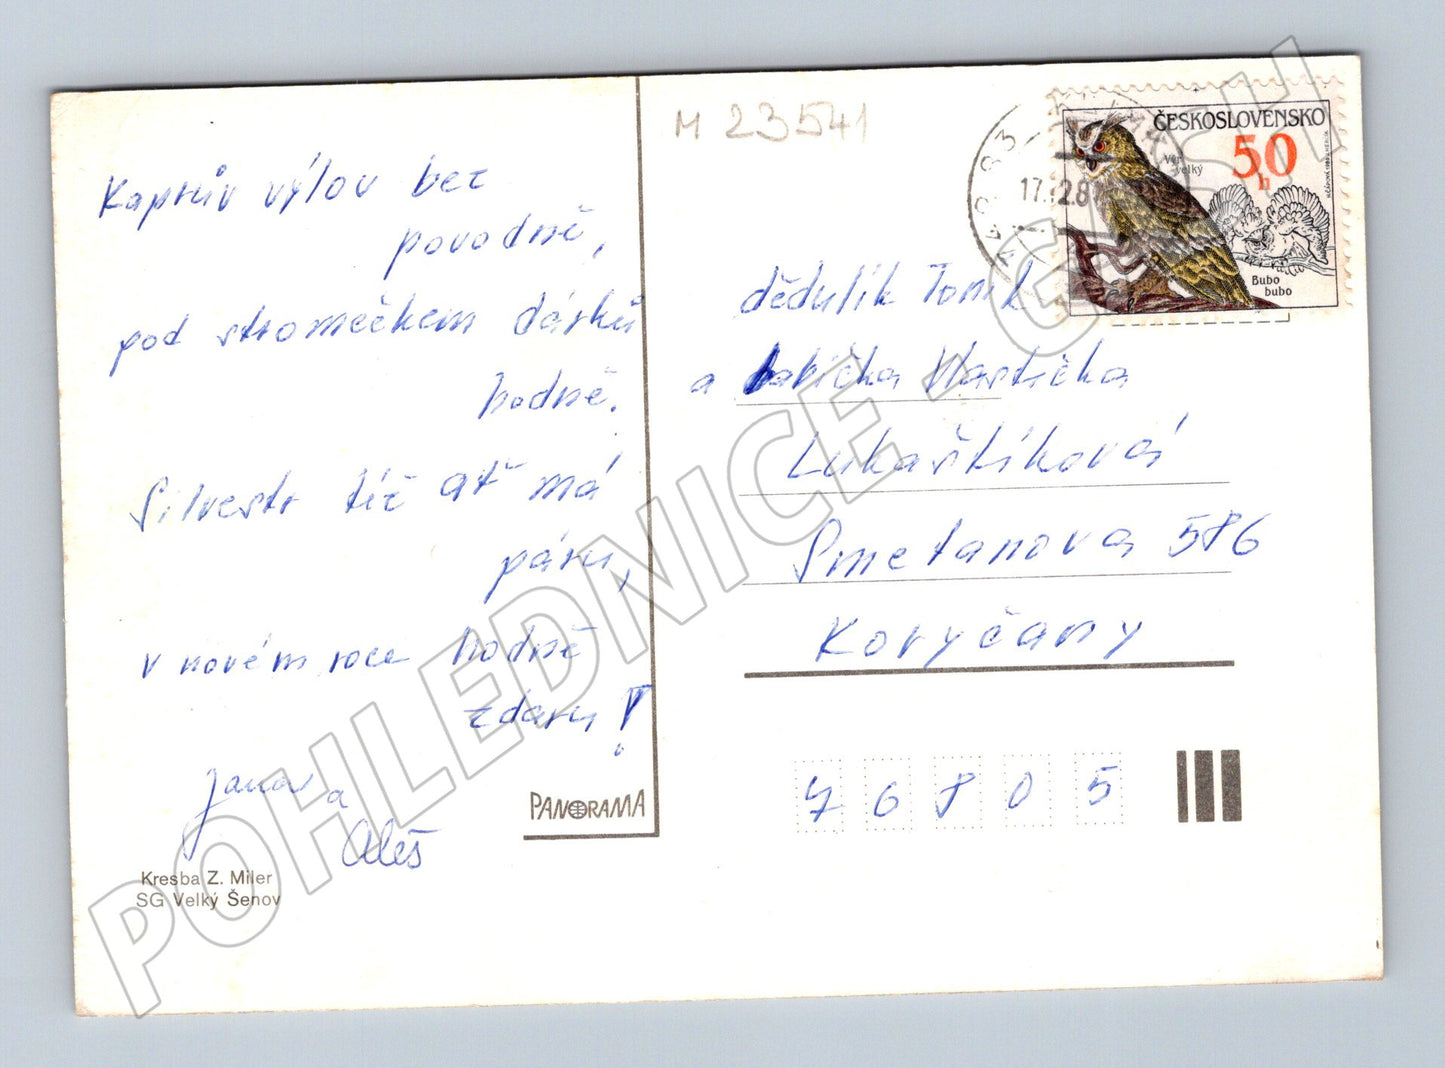 M 23541
Kaprův výlov bez
povodně,
pod stromečkem dárků
hodně.
Silvestr též ať má
páru,
v novém roce hodně
zdaru!
Jana a
Aleš
Kresba Z. Miler
SG Velký Šenov
PANORAMA
ČESKOSLOVENSKO
50
h
Výr
velký
Bubo
bubo
17.12.8
dědulík Toník
a babička Vlastička
Lukaštíková
Smetanova 586
Koryčany
76805
POHLEDNICE - CASH